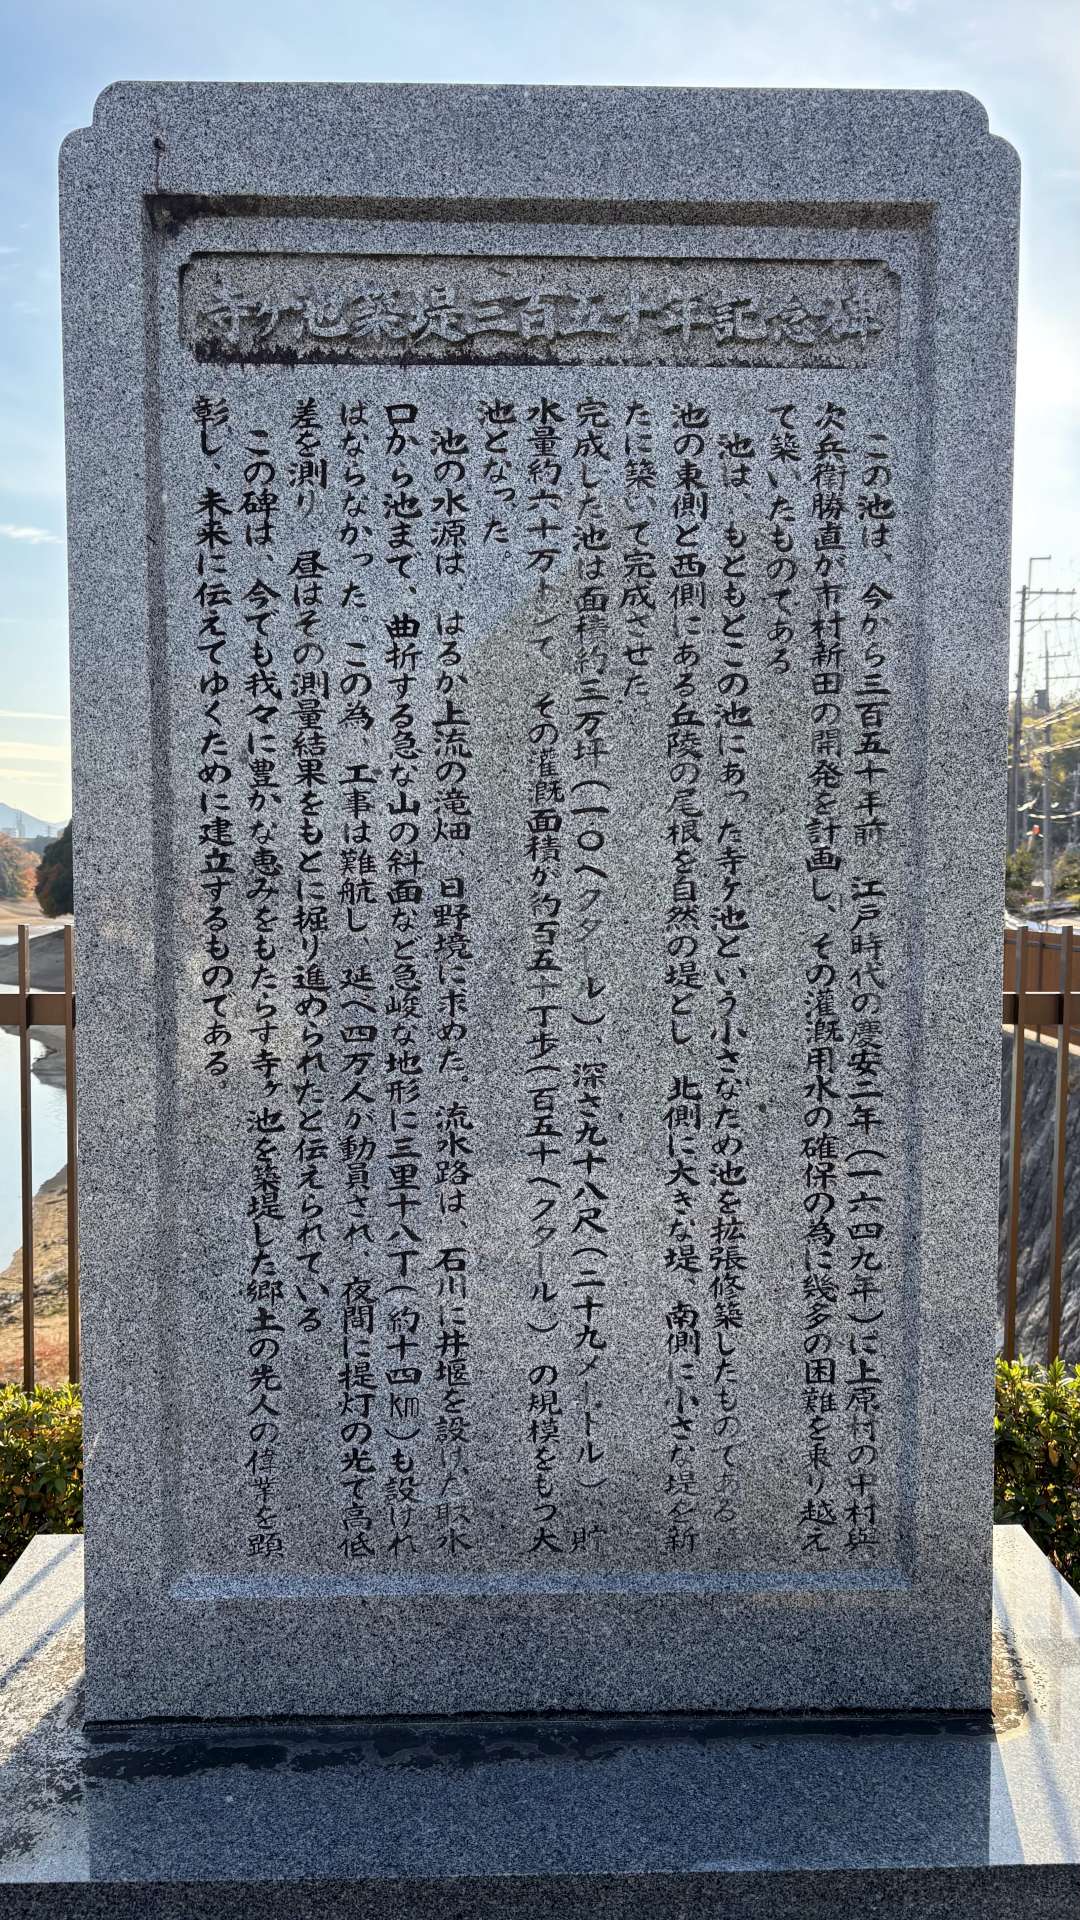 寺ヶ池築堤三百五十年記念碑
この池は、今から三百五十年前、江戸時代の慶安二年(一六四九年)に上原村の中村與
次兵衛勝直が市村新田の開発を計画し、その灌漑用水の確保の為に幾多の困難を乗り越え
て築いたものである
池は、もともとこの池にあった寺ヶ池という小さなため池を拡張修築したものである
池の東側と西側にある丘陵の尾根を自然の堤とし、北側に大きな堤、南側に小さな堤を新
たに築いて完成させた
完成した池は面積約三万坪(一〇ヘクタール)、深さ九十八尺(二十九メートル)貯
水量約六十万トンで、その灌漑面積が約百五十丁歩(百五十ヘクタール)、の規模をもつ大
池となった。
池の水源は、はるか上流の滝畑、日野境に求めた。流水路は、石川に井堰を設けた取水
口から池まで、曲折する急な山の斜面など急峻な地形に三里十八丁(約十四㎞)も設けれ
ばならなかった。この為、工事は難航し、延べ四万人が動員され、夜間に提灯の光で高低
差を測り、昼はその測量結果をもとに掘り進められたと伝えられている。
この碑は、今でも我々に豊かな恵みをもたらす寺ヶ池を築堤した郷土の先人の偉業を顕
彰し、未来に伝えてゆくために建立するものである。